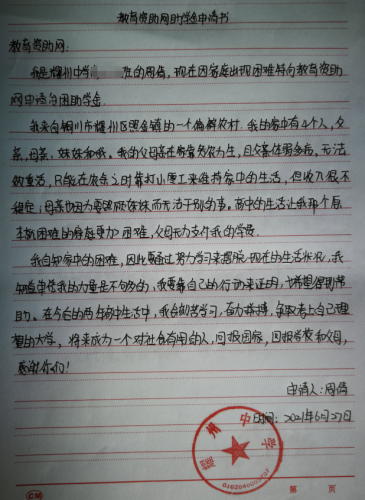 教育资助网助学金申请书
教育资助网:
我是耀州中学 班的周倩,现在因家庭出现困难特向教育资助
网申请贫困助学金。
我来自铜川市耀州区照金镇的一个偏僻农村。我的家中有4个人,父
亲,母亲,妹妹和我。我的父母亲在家靠务农为生,且父亲体弱多病,无法
做重活,只能在农余之时靠打小零工来维持家中的生活,但收入很不
稳定;母亲也因为要照顾妹妹而无法干别的事。家中的生活让我那个原
本就困难的家庭更加困难,父母无力支付我的学费。
我自知家中的困难,因此要通过努力学习来摆脱现在的生活状况,我
知道单凭我的力量是不够的,我要靠自己的行动来证明,也希望得到帮
助。在今后的两年高中生活中,我会刻苦学习,奋力拼搏,争取考上自己理
想的大学,将来成为一个对社会有用的人,回报国家,回报学校和父母,
感谢你们!
申请人:周倩
时间:2021年6月27日
耀州中学
第 页